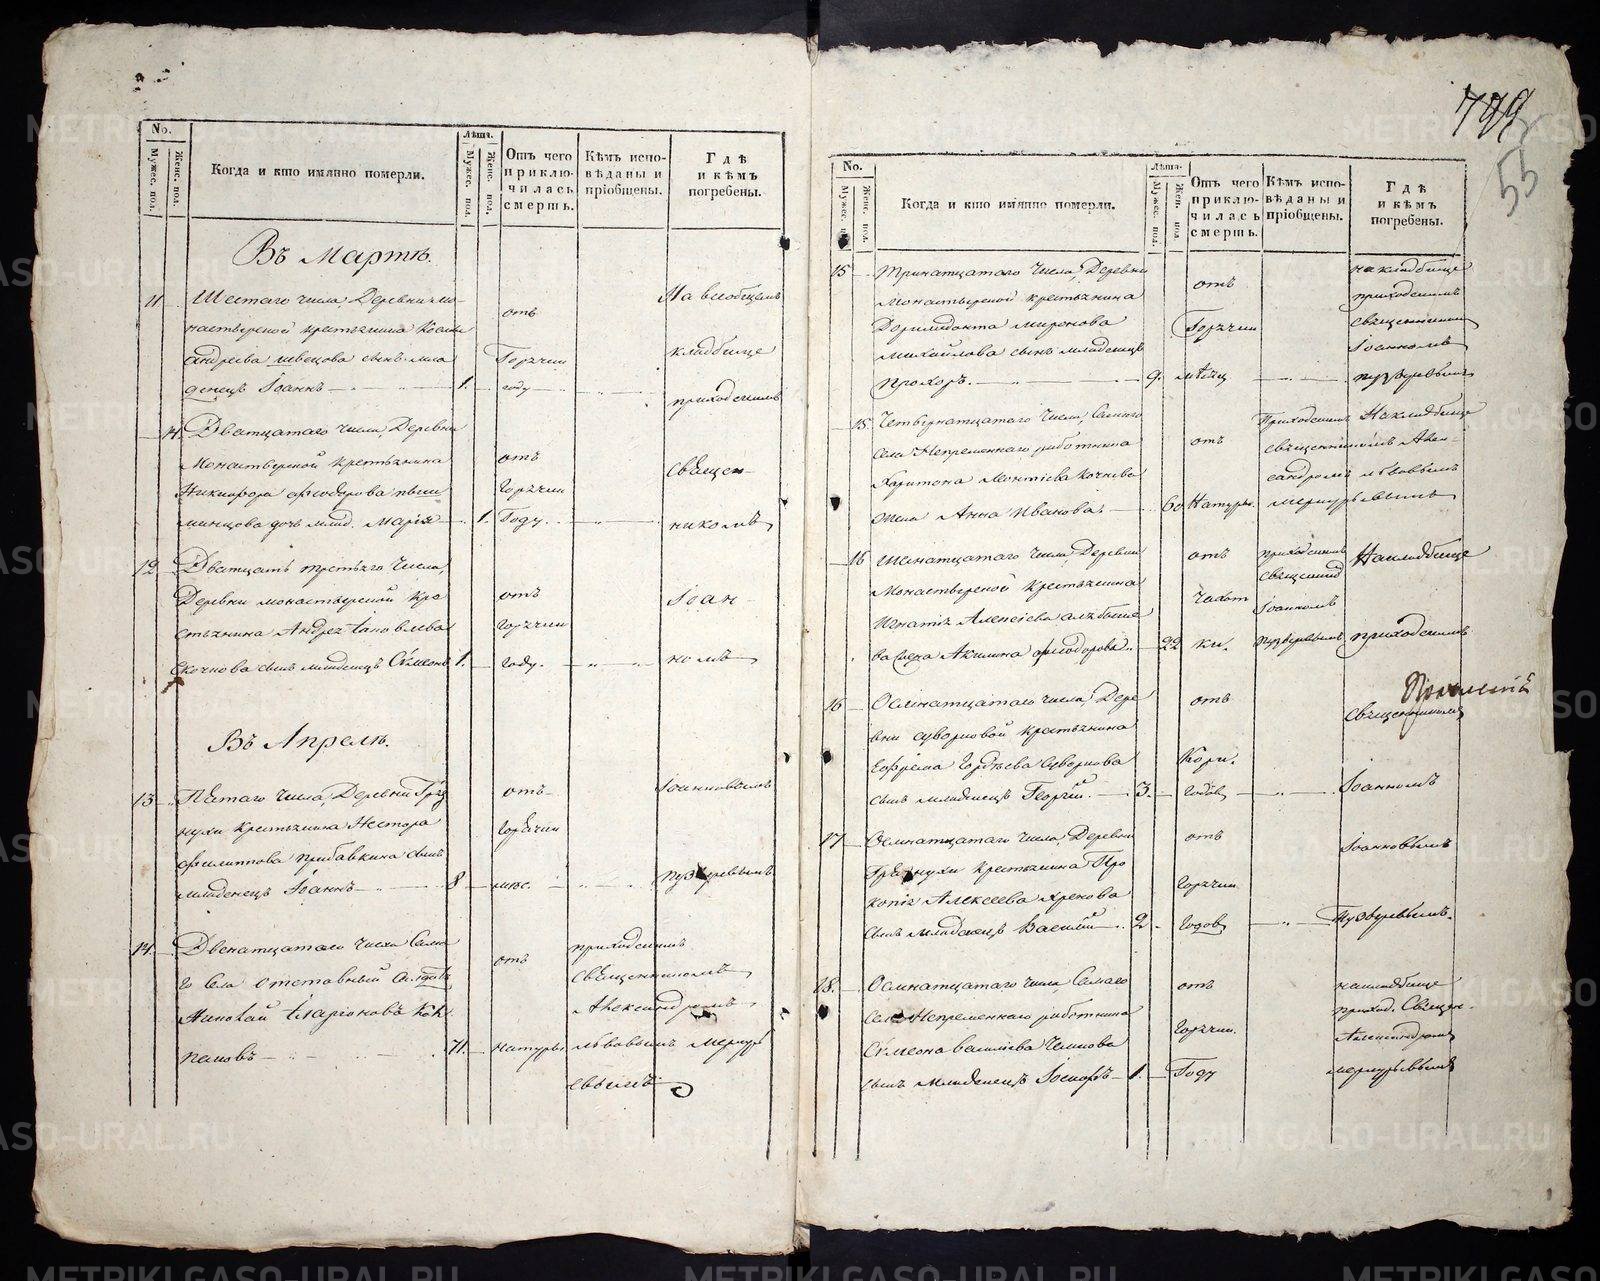 799
55
No.
Мужес. пол.
Женс. пол.
Когда и кто имянно померли.
Лѣта.
Мужес. пол.
Женс. пол.
Отъ чего приключилась смерть.
Кѣмъ исповѣданы и пріобщены.
Гдѣ и кѣмъ погребены.
Въ Мартѣ.
11
Шестаго числа Деревни Мо-
настырской крестьянина Косьмы
Андреева Швецова сынъ мла
денецъ Іоаннъ
1.
отъ
Горячки
году
На всеобщемъ
кладбище
приходскимъ
11.
Дватцатаго числа, Деревни
Монастырской Крестьянина
Никифора Феодорова пыш
минцова дочь млад. Марія
1.
отъ
Горячки
Году.
Священ-
никомъ
12
Дватцать третьяго числа,
Деревни монастырской кре
стьянина Андрея
Скочкова сынъ младенецъ Сѵмеонъ
1.
отъ
горячки
году.
Іоан-
номъ
Въ Апрелѣ.
13
Пятаго числа, Деревни Гряз
нухи крестьянина Нестора
Филиппова прибавкина сынъ
младенецъ Іоаннъ
8
отъ
Горячки
мѣс.
Іоанновымъ
Пузыревымъ
14.
Двенатцатаго числа Сама
го Села отставный Солдатъ
Николай Иларіоновъ
паловъ
71.
отъ
натуры
приходскимъ
Священникомъ
Александромъ
Львовымъ Меркурь
евымъ
No.
Мужес. пол.
Женс. пол.
Когда и кто имянно померли.
Лѣта.
Мужес. пол.
Жен. пол.
Отъ чего приключилась смерть.
Кѣмъ исповѣданы и пріобщены.
Гдѣ и кѣмъ погребены.
15
Тринатцатаго числа, Деревни
Монастырской крестьянина
Доримидонта миронова
Михайлова сынъ младенецъ
Прохоръ.
9.
отъ
Горячки
мѣсяц
на кладбище
приходскимъ
священником
Іоанномъ
пузыревымъ
15
Четвернатцатаго числа, Самаго
села Непременнаго работника
Харитона Леонтіева Кочнева
жена Анна Иванова.
60
отъ
Натуры.
Приходским
священникомъ Алек-
сандромъ львовымъ
меркурьевымъ
На кладбище
16
Шеснатцатаго числа, Деревни
Монастырской Крестьянина
Игнатія Алексіева
Акилина Феодорова.
22
отъ
Чахот
ки.
приходским
священник
Іоанномъ
пузыревымъ
На кладбище
приходскимъ
16
Осмнатцатаго числа, Дере
вни суворковой крестьянина
Ефрема Гордѣева Суворкова
сынъ младенецъ Георгій.
3.
отъ
Кори.
Годов
священником
Іоанномъ
17
Осмнатцатаго числа, Деревни
Грязнухи крестьянина Про
копія Алексеева хренова
сынъ младенецъ Василій
2.
отъ
Горячки
Годов
Іоанновымъ
Пузыревымъ.
18.
Осмнатцатаго числа Самаго
Села Непременнаго работника
Сѵмеона Василіева
сынъ младенецъ Іосифъ
1.
отъ
Горячки.
Году
на кладбище
приход. Священ.
Александром
меркурьевымъ
METRIKI.GASO-URAL.RU